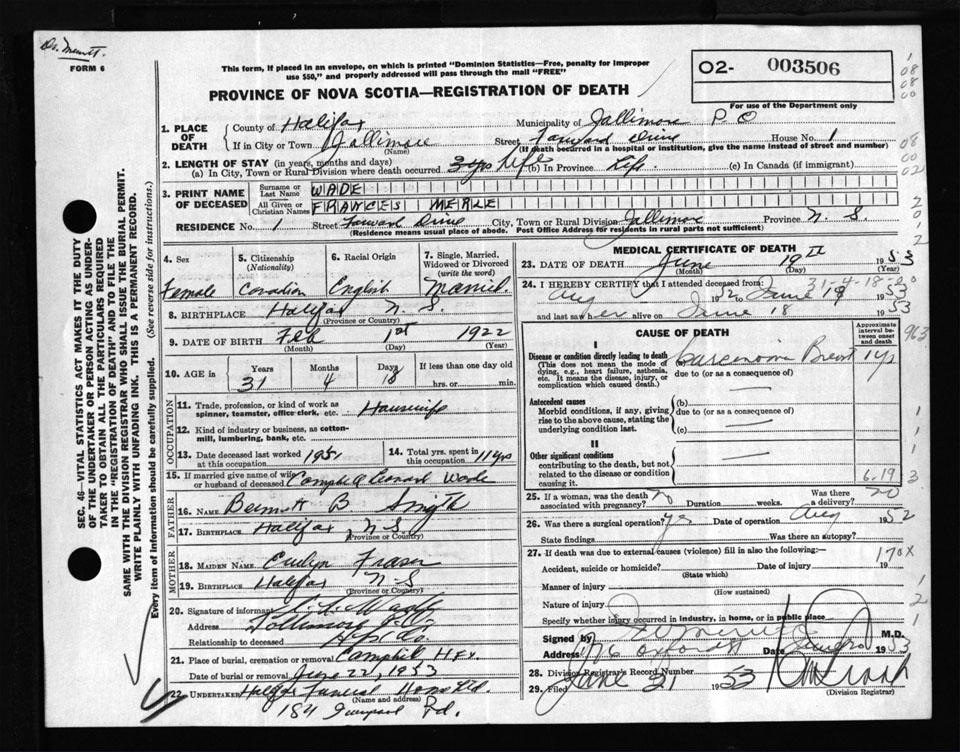 Dr. Merritt.
FORM 6
This form, if placed in an envelope, on which is printed "Dominion Statistics—Free, penalty for improper
use $50," and properly addressed will pass through the mail "FREE"
PROVINCE OF NOVA SCOTIA—REGISTRATION OF DEATH
O2- 003506
For use of the Department only
1. PLACE OF DEATH
County of Halifax Municipality of Jallimore P O
If in City or Town Jallimore Street Forward Drive House No. 1
(Name) (If death occurred in a hospital or institution, give the name instead of street and number)
2. LENGTH OF STAY (in years, months and days)
(a) In City, Town or Rural Division where death occurred 3 yrs Life (b) In Province Life (c) In Canada (if immigrant)
3. PRINT NAME OF DECEASED
Surname or Last Name WADE
All Given or Christian Names FRANCES MERLE
RESIDENCE No. 1 Street Forward Drive City, Town or Rural Division Jallimore Province N. S.
(Residence means usual place of abode. Post Office Address for residents in rural parts not sufficient)
4. Sex Female
5. Citizenship (Nationality) Canadian
6. Racial Origin English
7. Single, Married, Widowed or Divorced (write the word) Married.
8. BIRTHPLACE Halifax N. S.
(Province or Country)
9. DATE OF BIRTH Feb 1st 1922
(Month) (Day) (Year)
10. AGE in Years 31 Months 4 Days 18 If less than one day old
hrs. or min.
OCCUPATION
11. Trade, profession, or kind of work as spinner, teamster, office clerk, etc. Housewife
12. Kind of industry or business, as cotton-mill, lumbering, bank, etc.
13. Date deceased last worked at this occupation 1951
14. Total yrs. spent in this occupation 11 yrs
15. If married give name of wife or husband of deceased Campbell Leonard Wade
FATHER
16. NAME B. Smith
17. BIRTHPLACE Halifax N S
(Province or Country)
MOTHER
18. MAIDEN NAME Evelyn Fraser
19. BIRTHPLACE Halifax N S
(Province or Country)
20. Signature of informant
Address
Relationship to deceased
21. Place of burial, cremation or removal Campbell Hfx.
Date of burial or removal June 22, 1953
22. UNDERTAKER Halifax Funeral Home Ltd.
(Name and address)
Rd.
MEDICAL CERTIFICATE OF DEATH
23. DATE OF DEATH June 19th 1953
(Month) (Day) (Year)
31-4-18
24. I HEREBY CERTIFY that I attended deceased from:
Aug 1952 to June 19 1953
and last saw her alive on June 18 1953
CAUSE OF DEATH
Approximate interval between onset and death
I
Disease or condition directly leading to death
(This does not mean the mode of dying, e.g., heart failure, asthenia, etc. It means the disease, injury, or complication which caused death.)
(a) Carcinoma Breast 1 yr
due to (or as a consequence of)
Antecedent causes
Morbid conditions, if any, giving rise to the above cause, stating the underlying condition last.
(b)
due to (or as a consequence of)
(c)
II
Other significant conditions
contributing to the death, but not related to the disease or condition causing it.
6.19
25. If a woman, was the death associated with pregnancy? No Duration weeks. Was there a delivery?
26. Was there a surgical operation? yes Date of operation Aug 1952
State findings Was there an autopsy?
27. If death was due to external causes (violence) fill in also the following:— 170X
Accident, suicide or homicide? Date of injury 19
(State which)
Manner of injury
(How sustained)
Nature of injury
Specify whether injury occurred in industry, in home, or in public place
Signed by M.D.
Address 176 Oxford St Date 1953
28. Division Registrar's Record Number
29. Filed June 21 1953
(Division Registrar)
SEC. 46—VITAL STATISTICS ACT MAKES IT THE DUTY
OF THE UNDERTAKER OR PERSON ACTING AS UNDER-
TAKER TO OBTAIN ALL THE PARTICULARS REQUIRED
IN THE "REGISTRATION OF DEATH" AND TO FILE THE
SAME WITH THE DIVISION REGISTRAR WHO SHALL ISSUE THE BURIAL PERMIT.
WRITE PLAINLY WITH UNFADING INK. THIS IS A PERMANENT RECORD.
Every item of information should be carefully supplied. (See reverse side for instructions.)
963